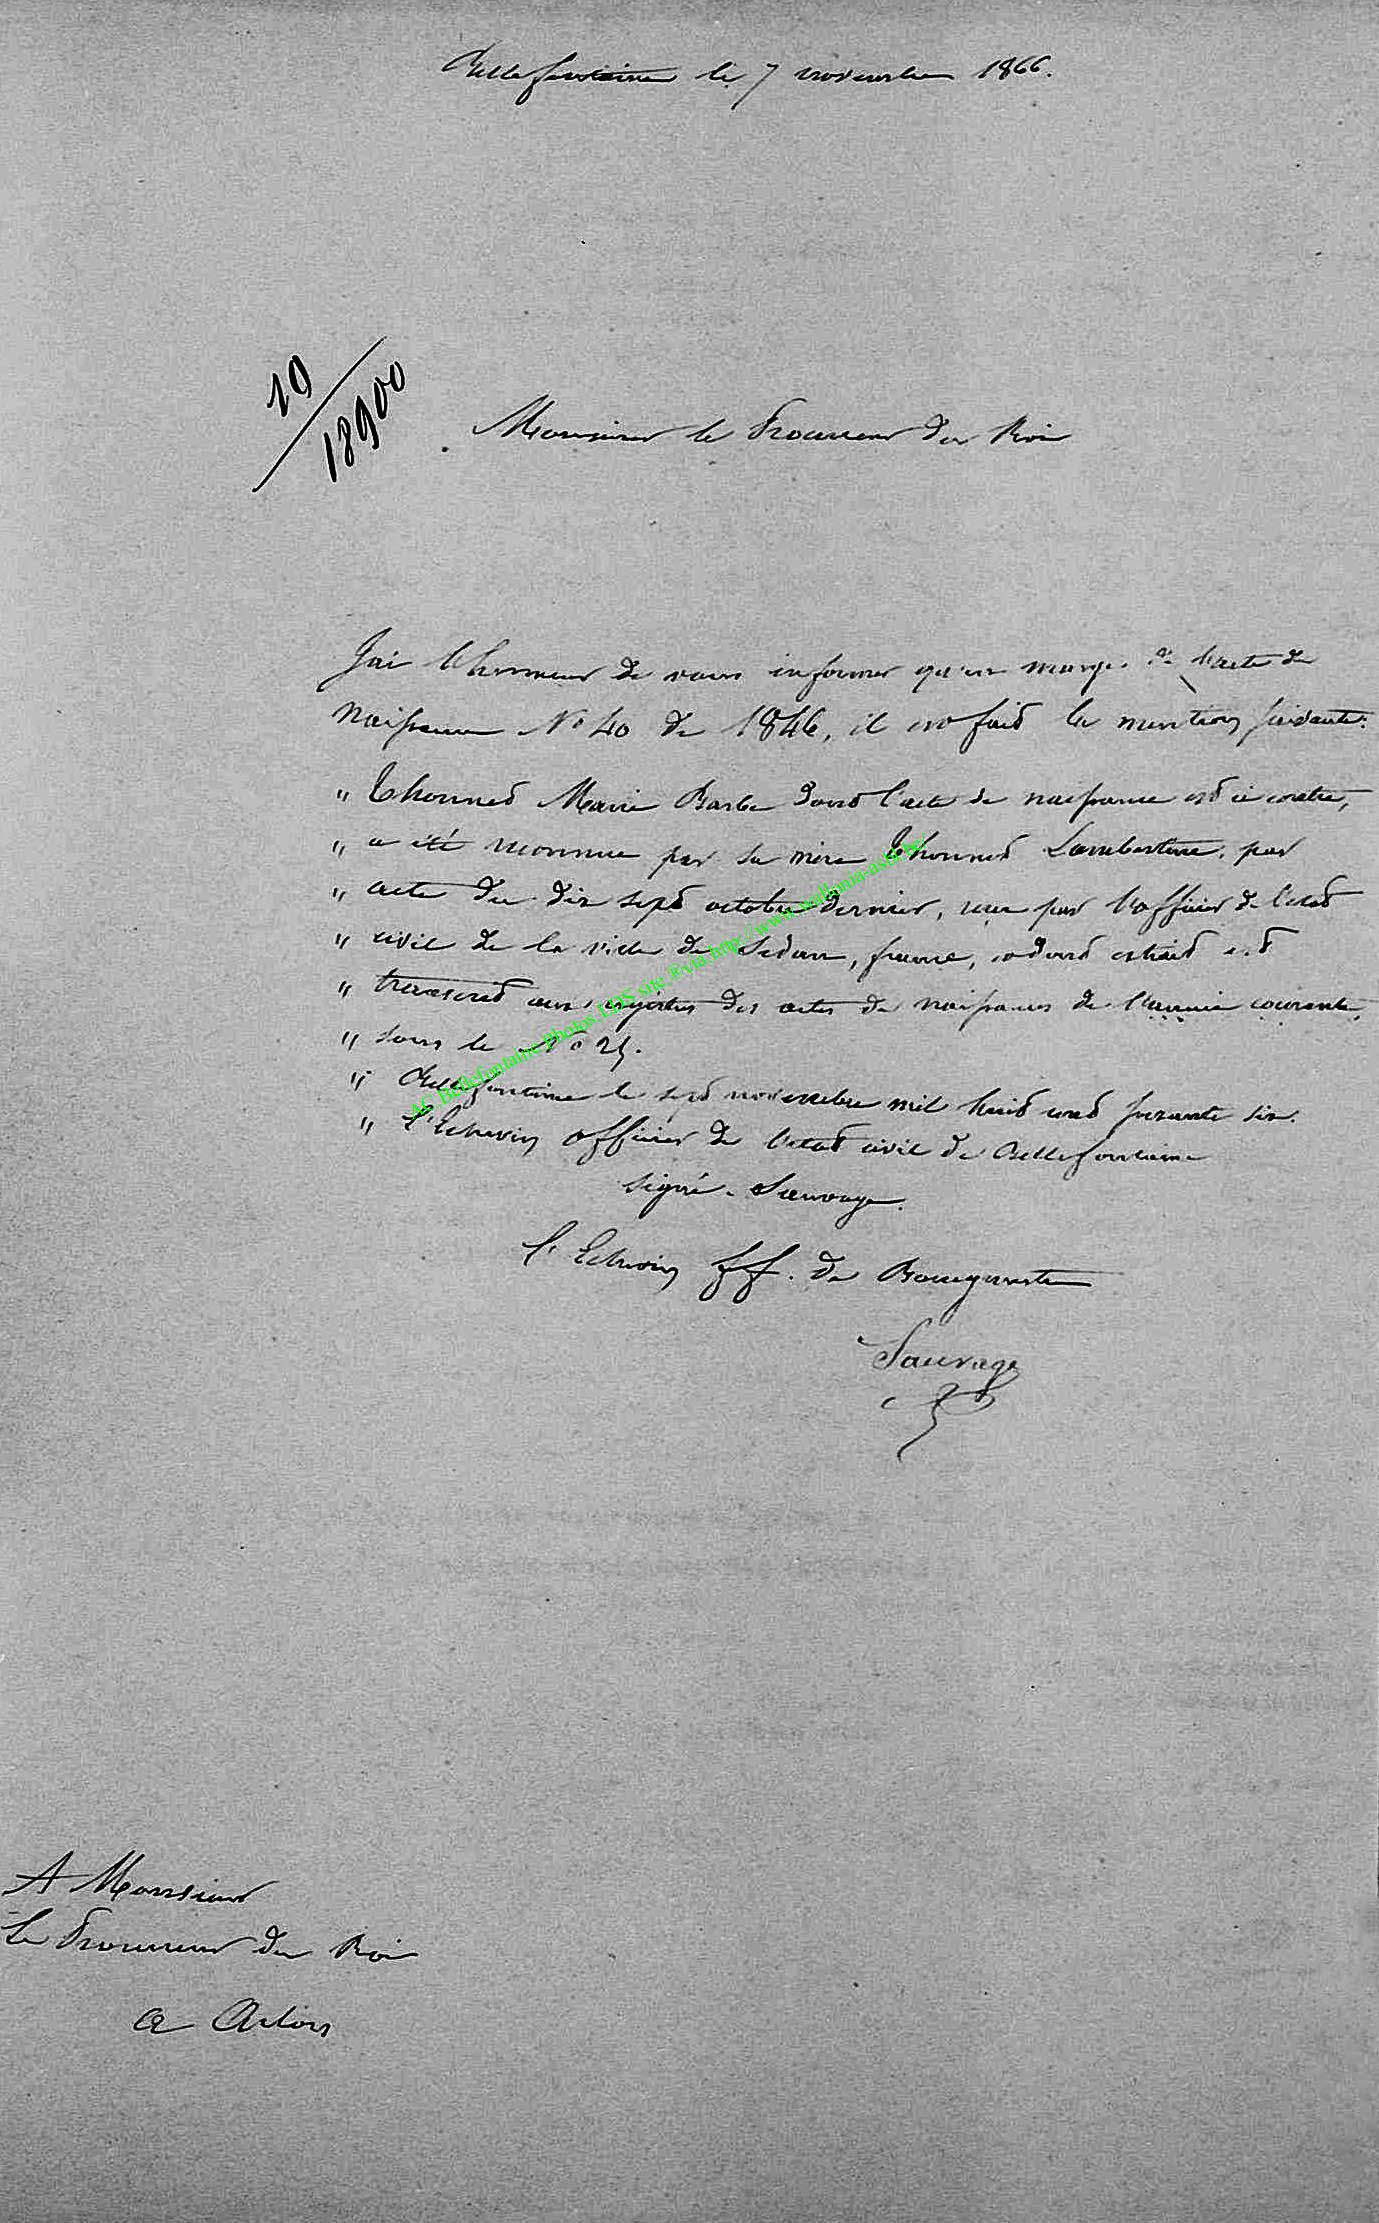 Bellefontaine le 7 novembre 1866.
19/18900
Monsieur le Procureur du Roi
J'ai l'honneur de vous informer qu'en marge de l'acte de
Naissance N° 40 de 1846, il est fait la mention suivante:
" Thonned Marie Barbe dont l'acte de naissance est ci contre,
" a été reconnue par sa mère Thonned Lambertine, par
" acte du dix sept octobre dernier, reçu par l'officier de l'etat
" civil de la ville de Sedan, france, et dont extrait est
" transcrit aux registres des actes de naissances de l'année courante,
" sous le N° 25.
" Bellefontaine le sept novembre mil huit cent soixante six.
" L'Echevin officier de l'etat civil de Bellefontaine
signé. Sauvage.
L'Echevin ff. de Bourgmestre
Sauvage
A Monsieur
Le Procureur du Roi
a Arlon
AC Bellefontaine Photos LDS site Evia http://www.wallonia-asbl.be/